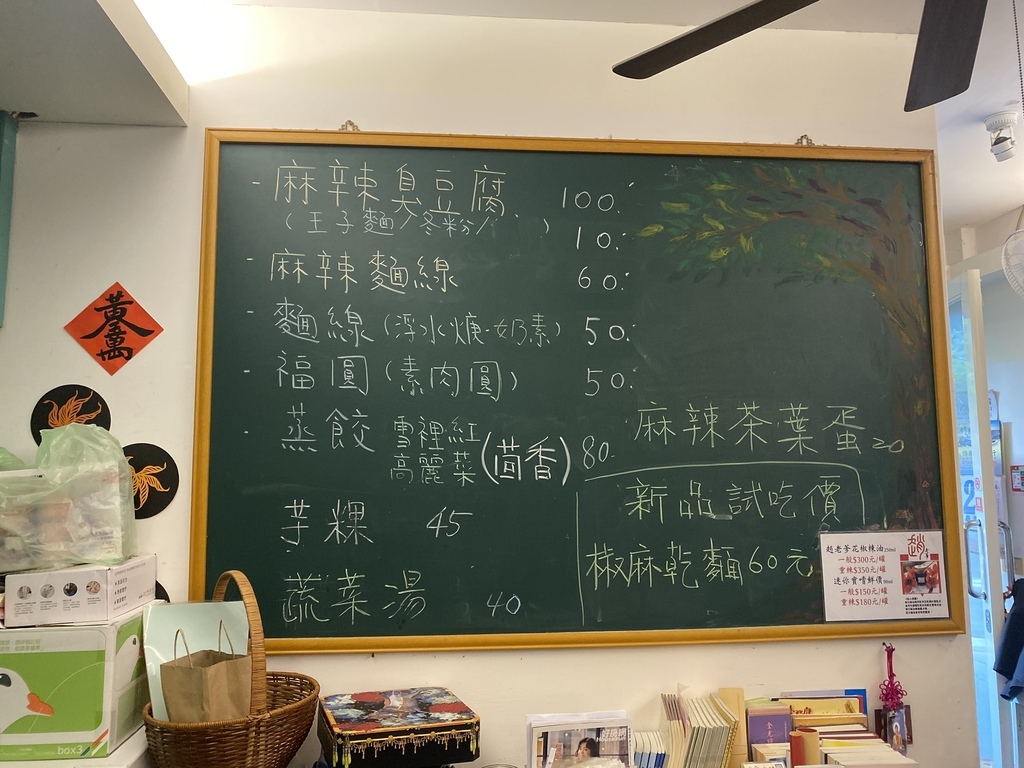 - 麻辣臭豆腐. 100.-
(王子麵/冬粉/ ) 10.-
- 麻辣麵線 60.-
- 麵線(浮水焿.奶素) 50.-
- 福圓(素肉圓) 50.-
- 蒸餃 雪裡紅 高麗菜 (茴香) 80.
芋粿 45
蔬菜湯 40
麻辣茶葉蛋20
新品試吃價
椒麻乾麵60元
趙老爹花椒辣油250ml
一般$300元/罐
重辣$350元/罐
迷你嘗鮮價90ml
一般$150元/罐
重辣$180元/罐
趙
box3